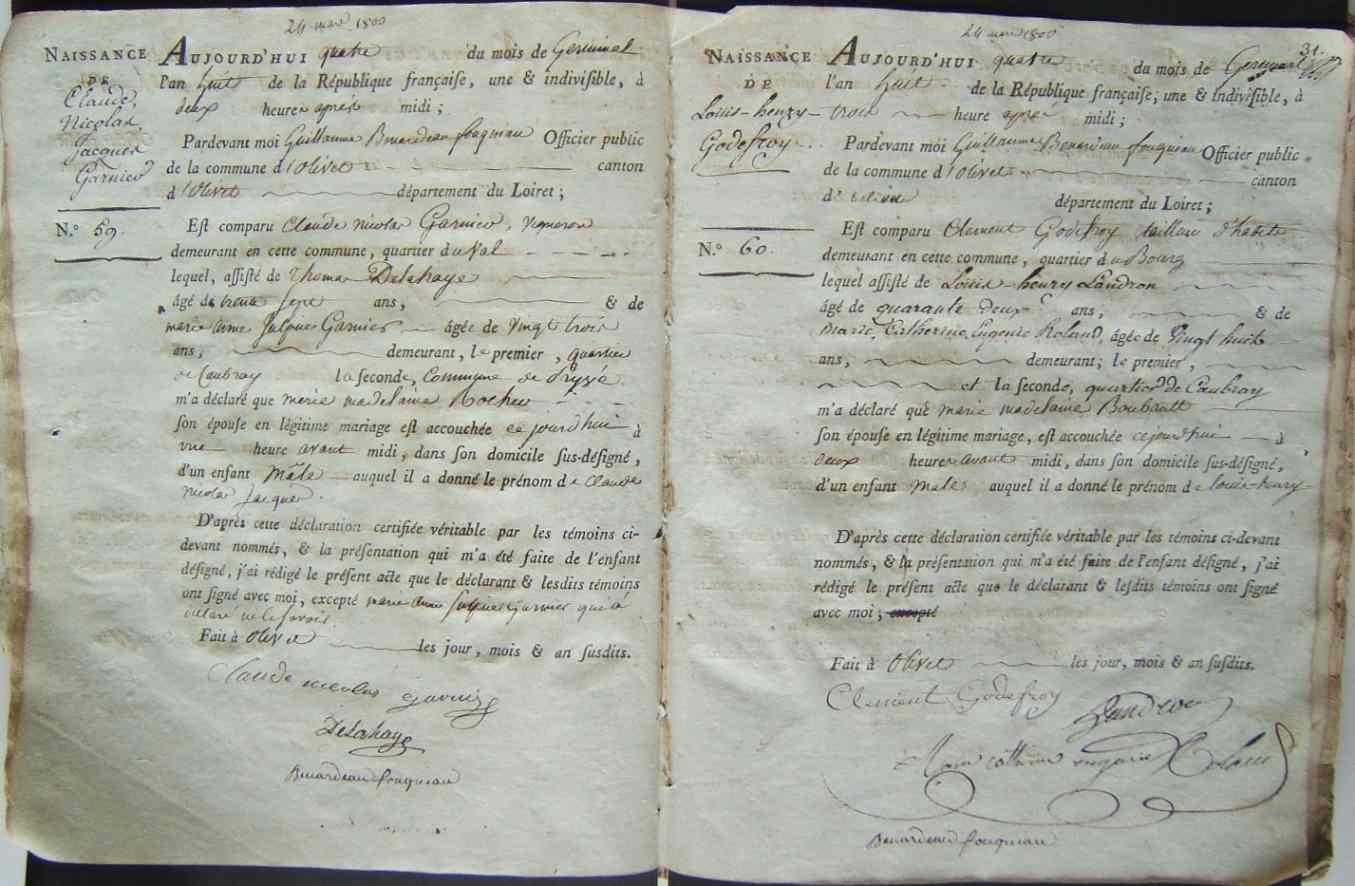 24 mars 1800
NAISSANCE
DE
Claude,
Nicolas
Jacques
Garnier
N.° 59.
AUJOURD'HUI quatre du mois de Germinal
l'an huit de la République française, une & indivisible, à
deux heure après midi ;
Pardevant moi Guillaume Benardeau fouqueau Officier public
de la commune d'Olivet canton
d'Olivet département du Loiret ;
Est comparu Claude Nicolas Garnier, vigneron
demeurant en cette commune, quartier du Val
lequel, assisté de Thomas Delahaye
âgé de trente sept ans, & de
marie anne Garnier âgée de vingt trois
ans, demeurant, le premier, quartier
de Caubray la seconde, Commune de
m'a déclaré que marie madelaine Rocher
son épouse en légitime mariage est accouchée ce jourd'hui à
une heure avant midi, dans son domicile sus-désigné,
d'un enfant Mâle auquel il a donné le prénom de Claude
nicolas Jacques.
D'après cette déclaration certifiée véritable par les témoins ci-
devant nommés, & la présentation qui m'a été faite de l'enfant
désigné, j'ai rédigé le présent acte que le déclarant & lesdits témoins
ont signé avec moi, excepté marie anne Garnier qui a
déclaré ne le savoir
Fait à Olivet les jour, mois & an susdits.
Claude nicolas garnier
Delahaye
Benardeau fouqueau
24 mars 1800
31.
NAISSANCE
DE
Louis-henry-
Godefroy.
N.° 60.
AUJOURD'HUI quatre du mois de Germinal
l'an huit de la République française, une & indivisible, à
trois heure après midi ;
Pardevant moi Guillaume Benardeau fouqueau Officier public
de la commune d'Olivet canton
d'Olivet département du Loiret ;
Est comparu Clement Godefroy tailleur d'habits
demeurant en cette commune, quartier du Bourg
lequel assisté de Louis-henry Landron
âgé de quarante deux ans, & de
Marie, Catherine, Eugenie Roland, âgée de vingt huit
ans, demeurant ; le premier,
et la seconde, quartier de Caubray
m'a déclaré que marie madelaine Boubault
son épouse en légitime mariage, est accouchée cejourd'hui à
deux heures avant midi, dans son domicile sus-désigné,
d'un enfant Male auquel il a donné le prénom de louis-henry-
D'après cette déclaration certifiée véritable par les témoins ci-devant
nommés, & la présentation qui m'a été faite de l'enfant désigné, j'ai
rédigé le présent acte que le déclarant & lesdits témoins ont signé
avec moi ; excepté
Fait à Olivet les jour, mois & an susdits.
Clement Godefroy
Landron
Marie catherine eugenie Roland
Benardeau fouqueau